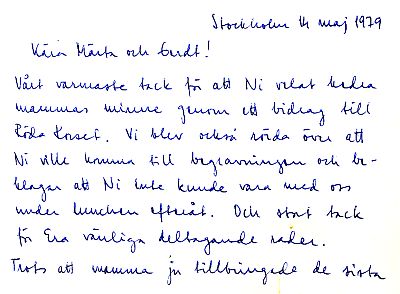 Stockholm 14 maj 1979
Kära Märta och Gerdt!
Vårt varmaste tack för att Ni velat hedra
mammas minne genom ett bidrag till
Röda Korset. Vi blev också rörda över att
Ni ville komma till begravningen och be-
klagar att Ni inte kunde vara med oss
under lunchen efteråt. Och stort tack
för Era vänliga deltagande rader.
Trots att mamma ju tillbringade de sista